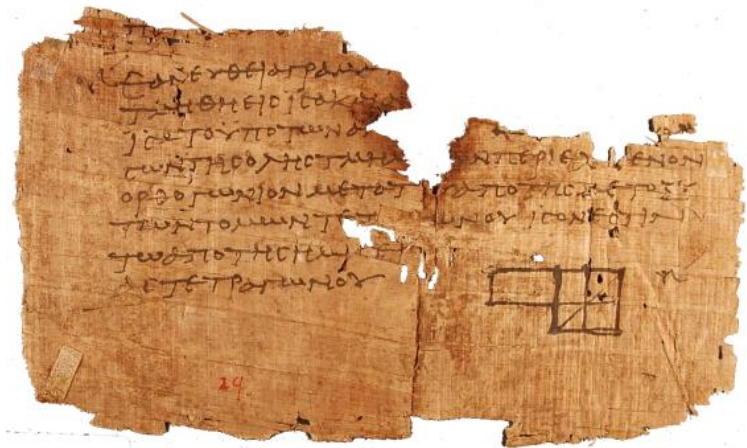 ΕΑΝΕΥΘΕΙΑΓΡΑΜ
ΤΜΗΘΗΕΙCΙCΑΚΑ
ΙCΑΤΟΥΠΟΤΩΝΑ
CΩΝΤΗCΟΛΗCΤΜΗΜΑ ΩΝΠΕΡΙΕΧ ΜΕΝΟΝ
ΟΡΘΟΓΩΝΙΟΝΜΕΤΑΤ ΑΠΟΤΗCΜΕΤΟΞΥ
ΤΩΝΤΟΜΩΝΤΕΤ ΩΝΟΥΙCΟΝΕCΤΙΝ
ΤΩΑΠΟΤΗCΗΜΙCΕΙ
ΑCΤΕΤΡΑΓΩΝΟΥ
29